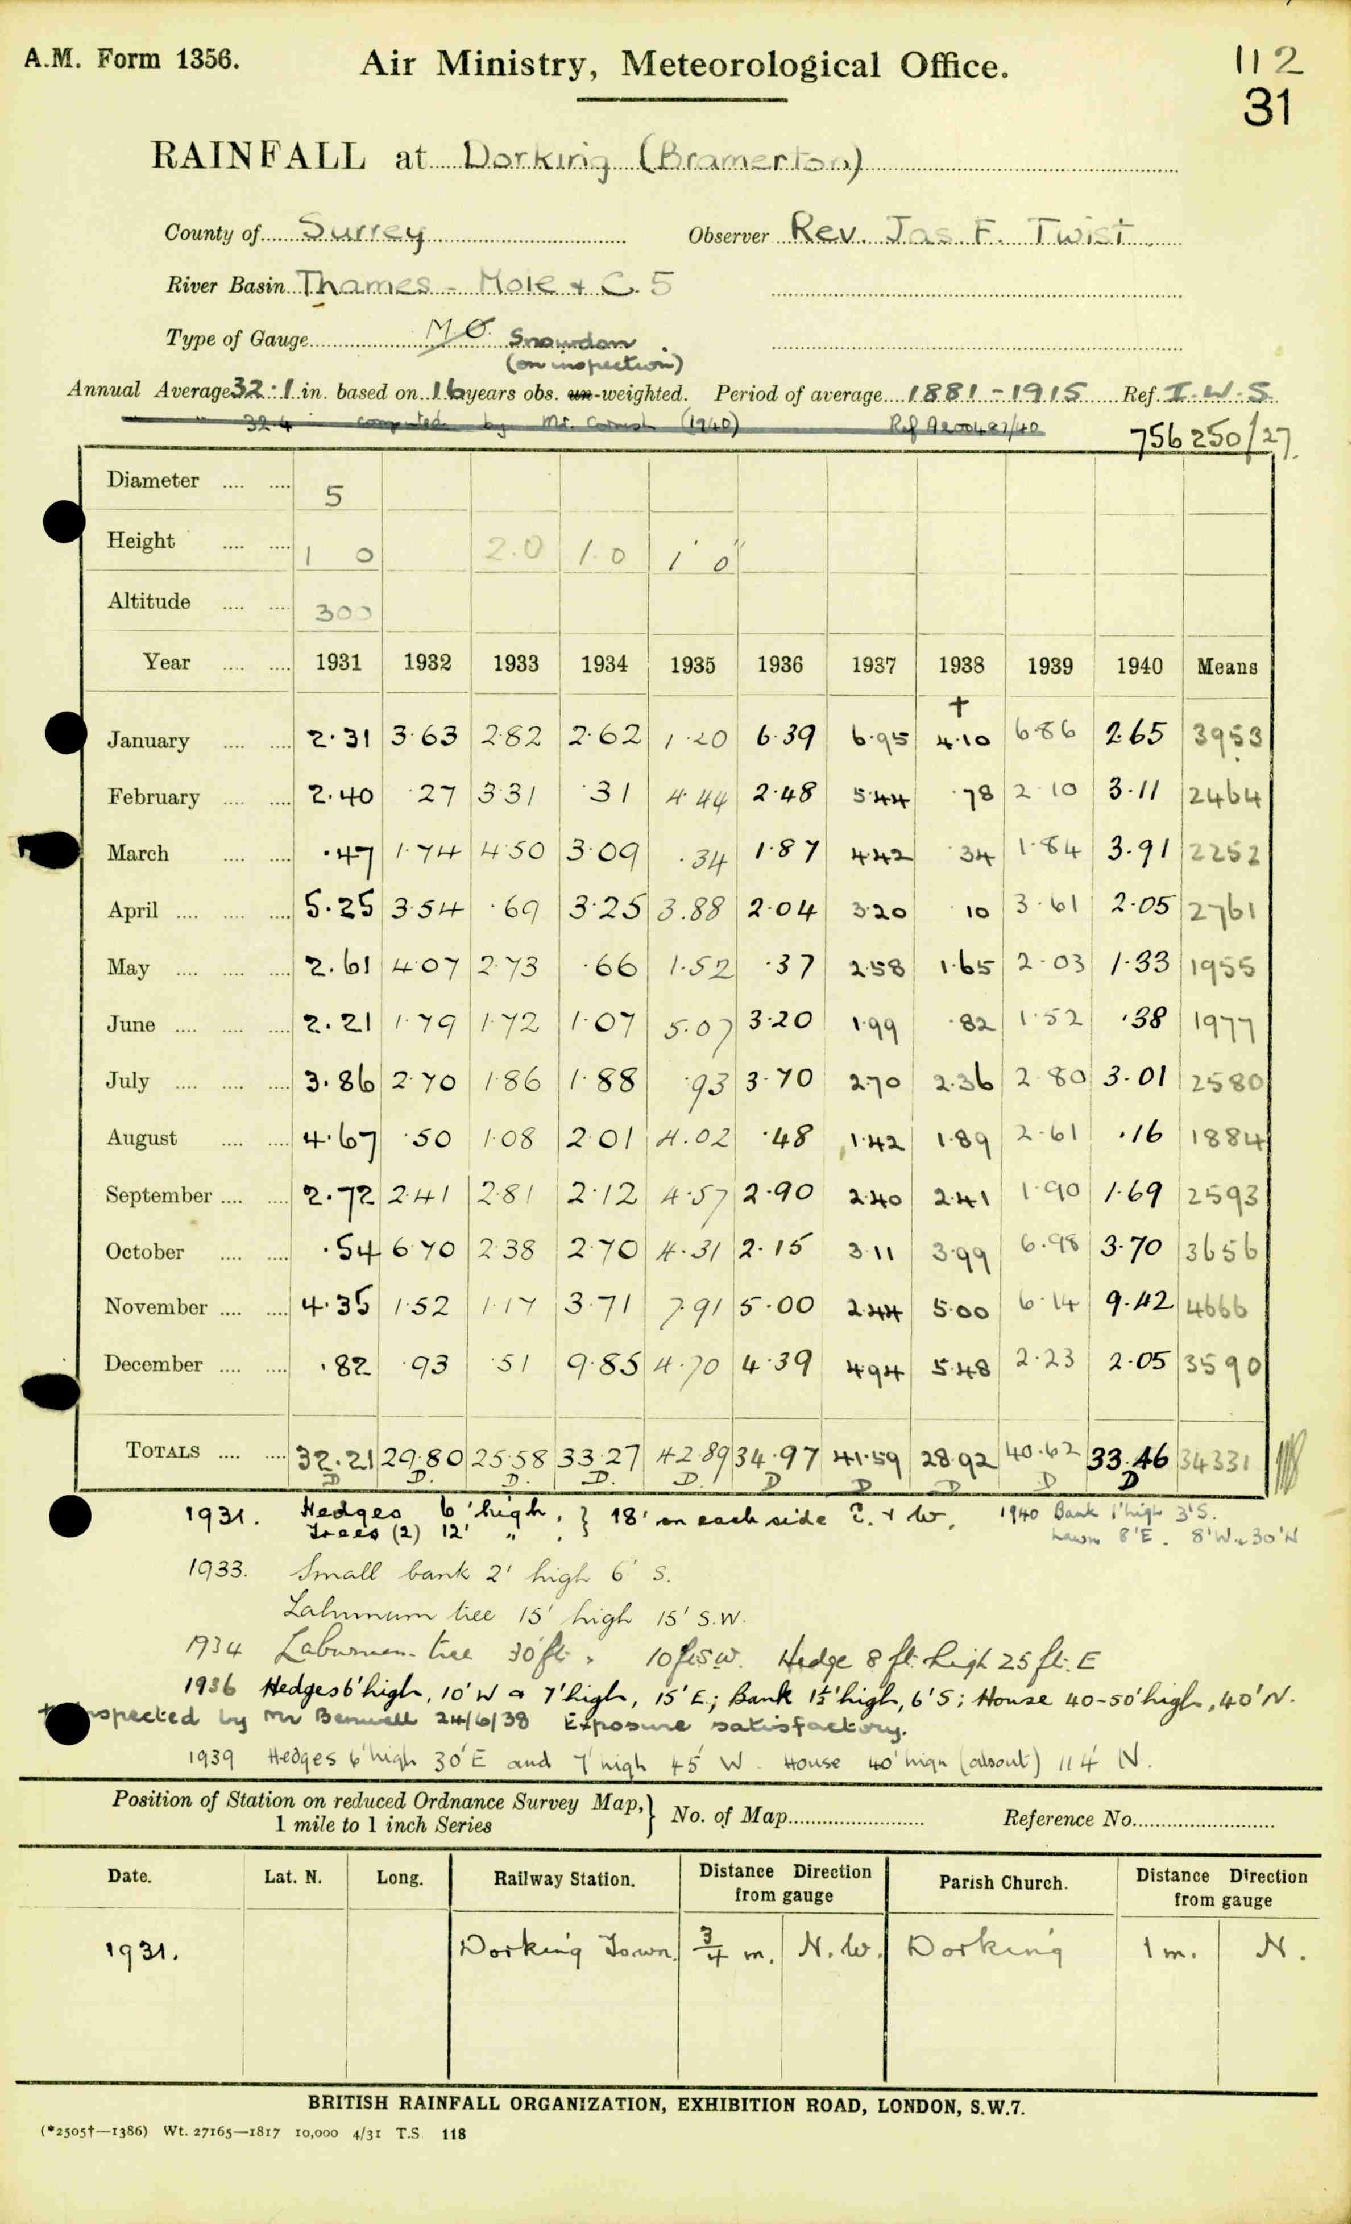 A.M. Form 1356. Air Ministry, Meteorological Office. 112
31
RAINFALL at Dorking (Bramerton)
County of Surrey Observer Rev. Jas. F. Twist
River Basin Thames - Mole & C. 5
Type of Gauge M.O. Snowdon
(on inspection)
Annual Average 32.1 in. based on 16 years obs. un-weighted. Period of average 1881-1915 Ref. I.W.S.
" 32.4 in computed by Mr. Cornish (1940)
756250/27
Diameter .... .... 5
Height .... .... 1 0 2.0 1.0 1' 0"
Altitude .... .... 300
Year .... .... 1931 1932 1933 1934 1935 1936 1937 1938 1939 1940 Means
†
January .... .... 2.31 3.63 2.82 2.62 1.20 6.39 6.95 4.10 6.86 2.65 3953
February .... .... 2.40 .27 3.31 .31 4.44 2.48 5.44 .78 2.10 3.11 2464
March .... .... .47 1.74 4.50 3.09 .34 1.87 4.42 .34 1.84 3.91 2252
April .... .... .... 5.25 3.54 .69 3.25 3.88 2.04 3.20 10 3.61 2.05 2761
May .... .... .... 2.61 4.07 2.73 .66 1.52 .37 2.58 1.65 2.03 1.33 1955
June .... .... .... 2.21 1.79 1.72 1.07 5.07 3.20 1.99 .82 1.52 .38 1977
July .... .... .... 3.86 2.70 1.86 1.88 .93 3.70 2.70 2.36 2.80 3.01 2580
August .... .... 4.67 .50 1.08 2.01 4.02 .48 1.42 1.89 2.61 .16 1884
September .... .... 2.72 2.41 2.81 2.12 4.57 2.90 2.40 2.41 1.90 1.69 2593
October .... .... .54 6.70 2.38 2.70 4.31 2.15 3.11 3.99 6.98 3.70 3656
November .... .... 4.35 1.52 1.17 3.71 7.91 5.00 2.44 5.00 6.14 9.42 4666
December .... .... .82 .93 .51 9.85 4.70 4.39 4.94 5.48 2.23 2.05 3590
TOTALS .... .... 32.21 29.80 25.58 33.27 42.89 34.97 41.59 28.92 40.62 33.46 34331
D D. D. D. D. D D D D D
1931. Hedges 6' high, } 18' on each side E. & W. 1940 Bank 1' high 3' S.
Trees (2) 12' " , Lawn 8' E. 8' W. 30' N
1933. Small bank 2' high 6' S.
Laburnum tree 15' high 15' S.W.
1934 Laburnum tree 30 ft. 10 ft SW. Hedge 8 ft. high 25 ft. E
1936 Hedges 6' high, 10' W & 7' high, 15' E; Bank 1½' high, 6' S; House 40-50' high, 40' N.
† Inspected by Mr Benwell 24/6/38 Exposure satisfactory.
1939 Hedges 6' high 30' E and 7' high 45' W. House 40' high (about) 114' N.
Position of Station on reduced Ordnance Survey Map, } No. of Map Reference No.
1 mile to 1 inch Series
Date. Lat. N. Long. Railway Station. Distance Direction from gauge Parish Church. Distance Direction from gauge
1931. Dorking Town. 3/4 m. N.W. Dorking 1 m. N.
BRITISH RAINFALL ORGANIZATION, EXHIBITION ROAD, LONDON, S.W.7.
(*2505†—1386) Wt. 27165—1817 10,000 4/31 T.S 118